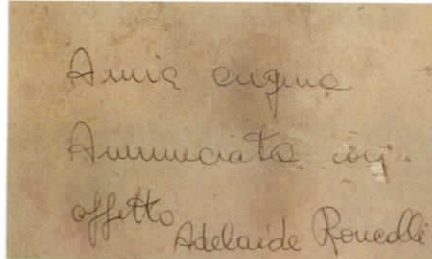 A mia cugina
Annunciata con
affetto
Adelaide Roncalli